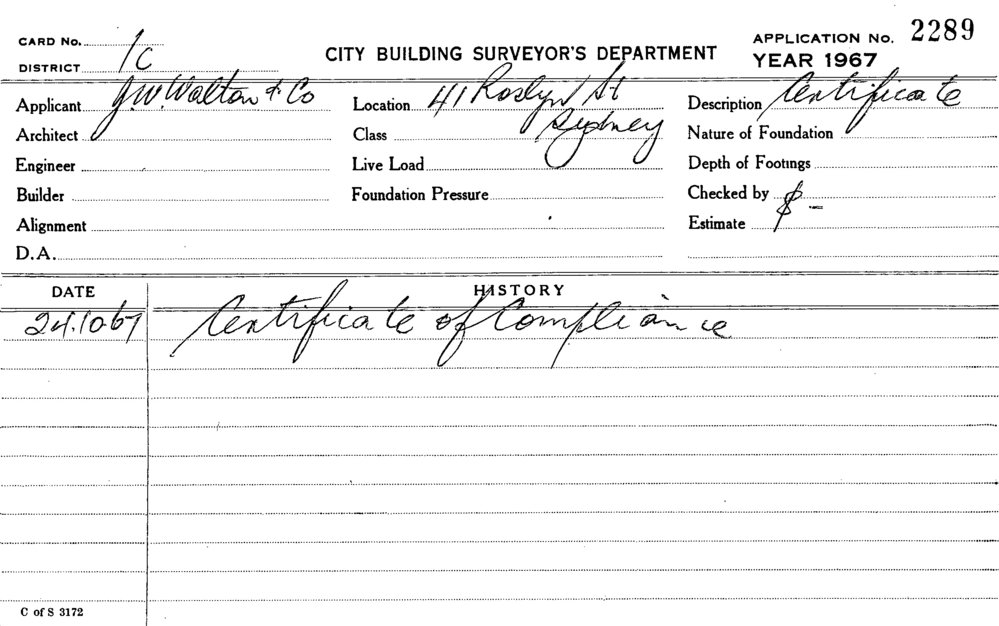 CARD No. 1
DISTRICT 1C
CITY BUILDING SURVEYOR'S DEPARTMENT
APPLICATION No. 2289
YEAR 1967
Applicant J.W. Walton & Co
Location 41 Roslyn St
Sydney
Description Certificate
Architect
Class
Nature of Foundation
Engineer
Live Load
Depth of Footings
Builder
Foundation Pressure
Checked by
Alignment
Estimate $ –
D.A.
DATE HISTORY
24.10.67 Certificate of Compliance
C of S 3172